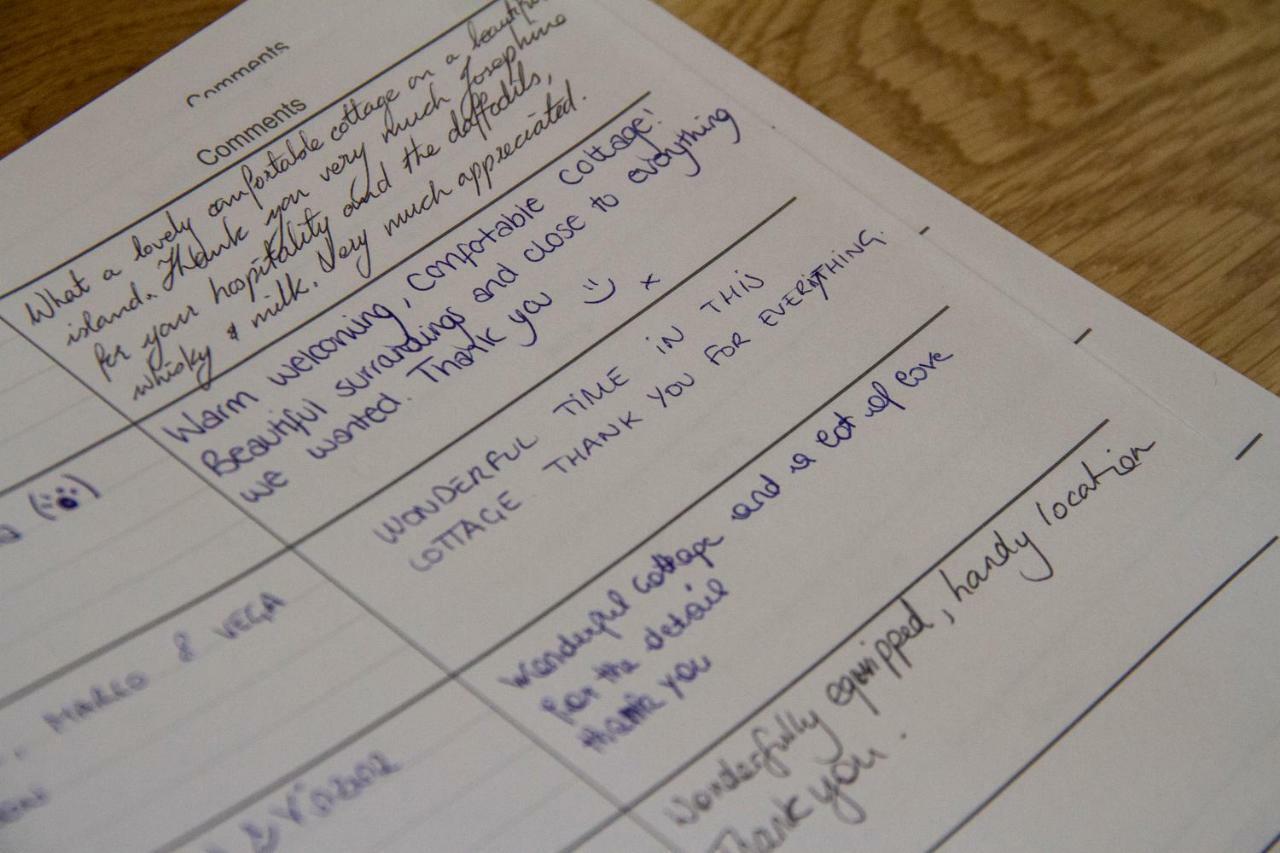 Comments
Comments
What a lovely comfortable cottage on a beautiful
island. Thank you very much Josephine
for your hospitality and the daffodils,
whisky & milk. Very much appreciated.
Warm welcoming, comfotable cottage!
Beautiful surrandings and close to everything
we wanted. Thank you :) x
WONDERFUL TIME IN THIS
COTTAGE THANK YOU FOR EVERYTHING.
MARCO & VEGA
Wonderful cottage and a lot of love
for the detail
thank you
Wonderfully equipped, handy location
Thank you.